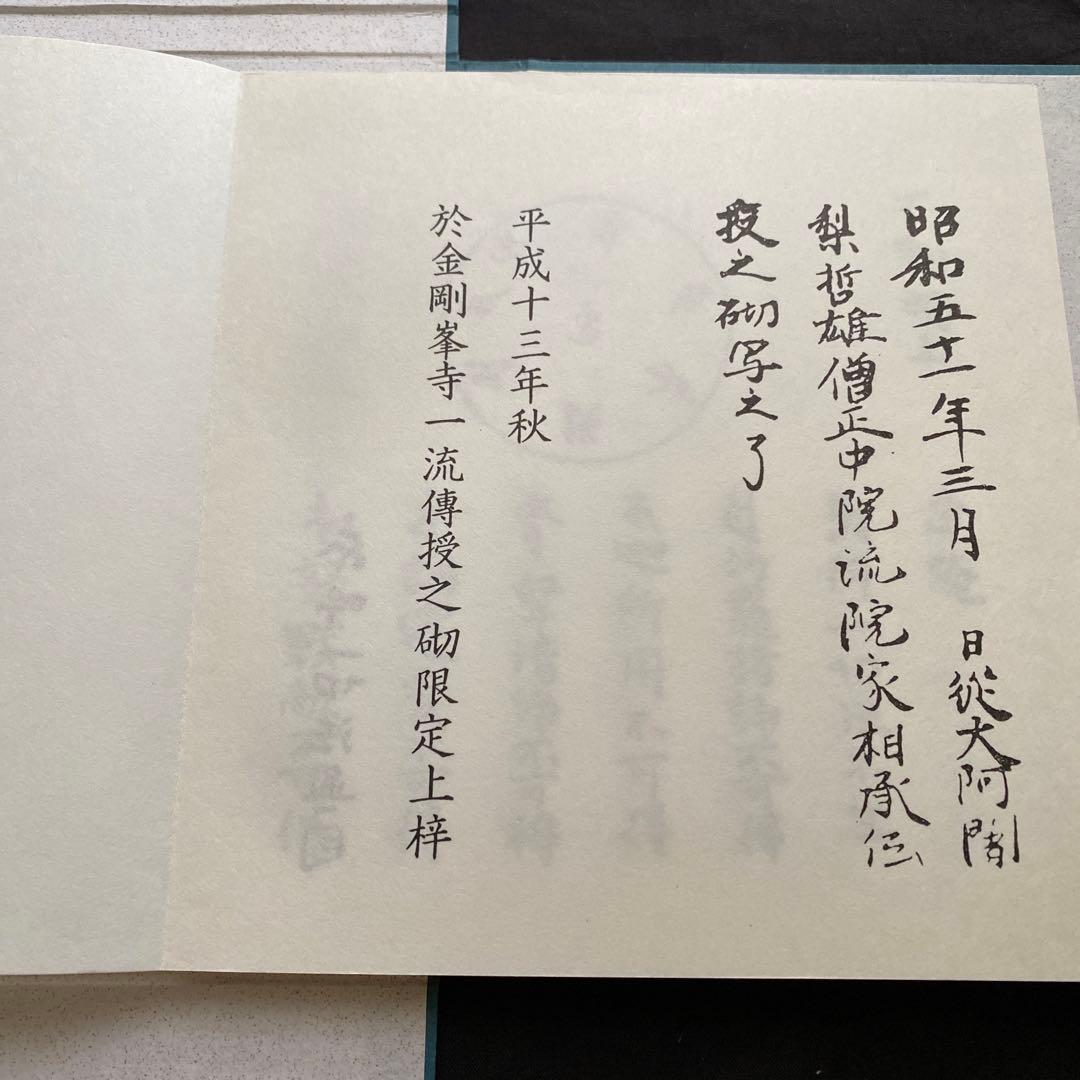 昭和五十一年三月　日從大阿闍
梨哲雄僧正中院流院家相承伝
授之砌写之了
平成十三年秋
於金剛峯寺一流傳授之砌限定上梓